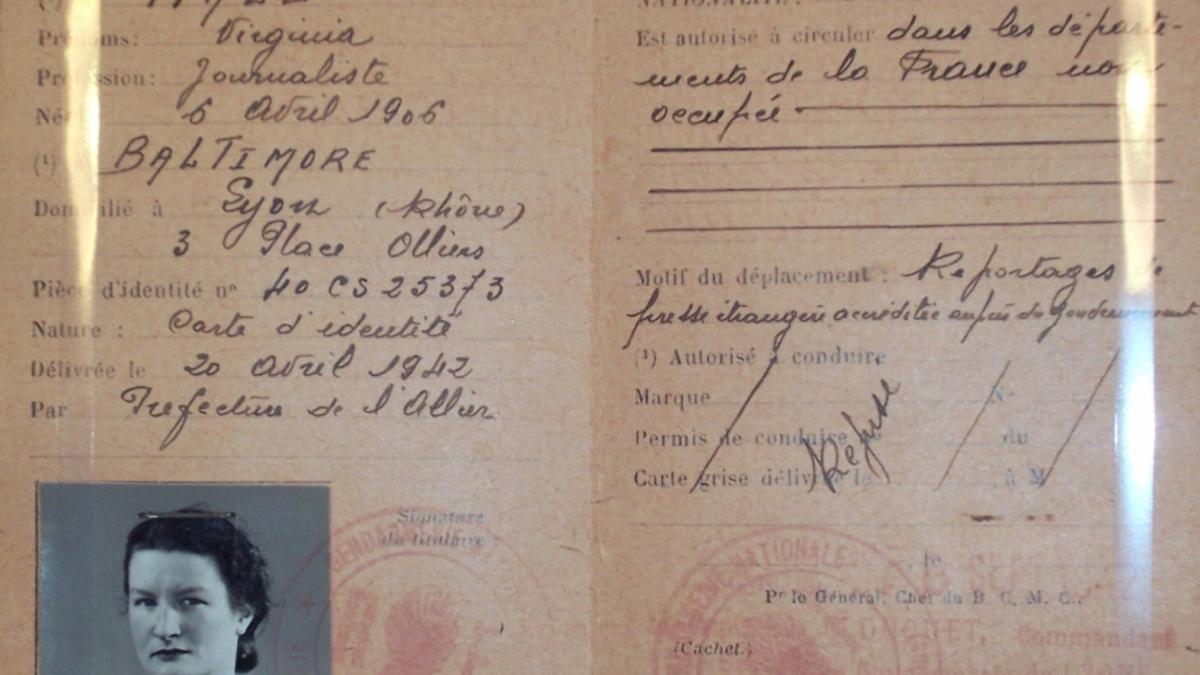 Prénoms: Virginia
Profession: Journaliste
Né 6 Avril 1906
(1) BALTIMORE
Domicilié à Lyon (Rhône)
3 Place Olliers
Pièce d'identité nº 40 CS 25373
Nature : Carte d'identité
Délivrée le 20 Avril 1942
Par Prefecture de l'Allier
Signature
du titulaire :
GENDARMERIE
NATIONALITÉ:
Est autorisé à circuler dans les départe-
ments de la France non
occupée
Motif du déplacement : Reportages de
presse étrangère accréditée auprès du Gouvernement
(1) Autorisé à conduire
Marque N°
Permis de conduire du
Refusé
Carte grise délivrée le , à M
NATIONALE
le
SEPT
Pr le Général, Chef du B. C. M. C.,
Commandant
(Cachet.)